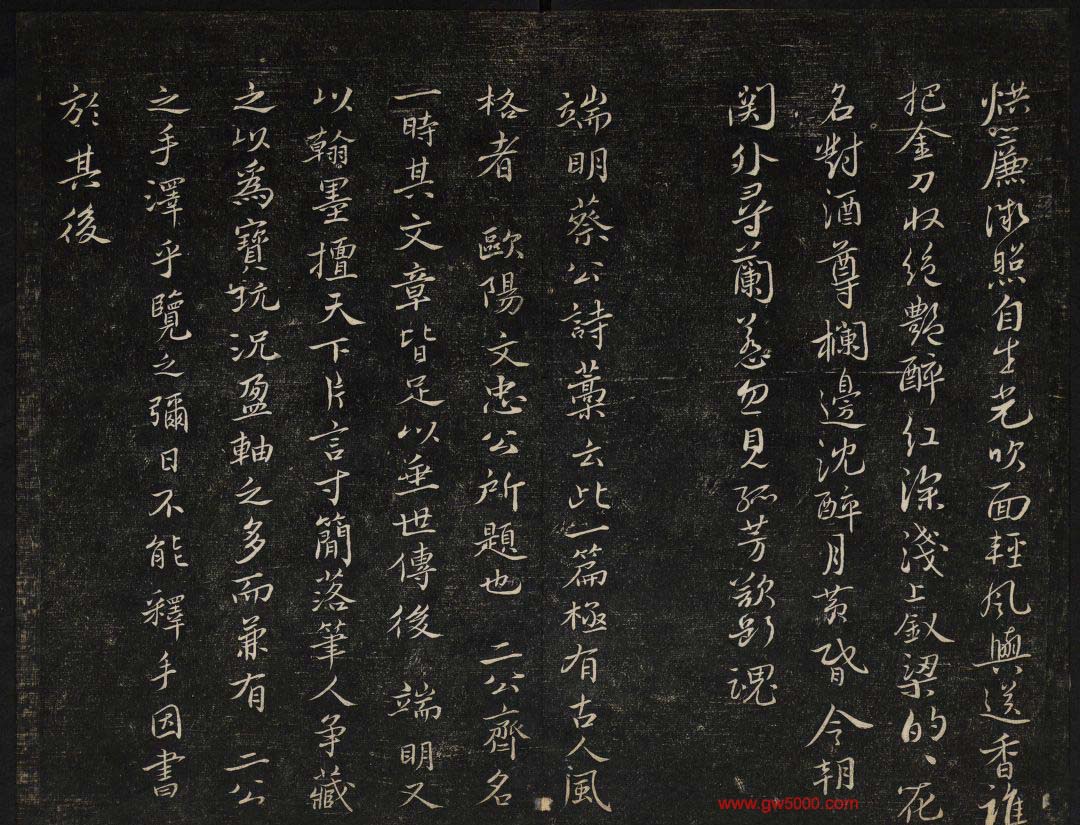 烘簾微照自生光吹面輕風與送香誰
把金刀收絶艷醉紅深淺上釵梁的〻花
名對酒尊欄邊沈醉月黃昏今朝
関外尋蘭蕙忽見孤芳欲斷魂
端明蔡公詩藁云此一篇極有古人風
格者 歐陽文忠公所題也 二公齊名
一時其文章皆足以垂世傳後 端明又
以翰墨擅天下片言寸簡落筆人争藏
之以爲寶玩況盈軸之多而兼有 二公
之手澤乎覽之彌日不能釋手因書
於其後
www.gw5000.com